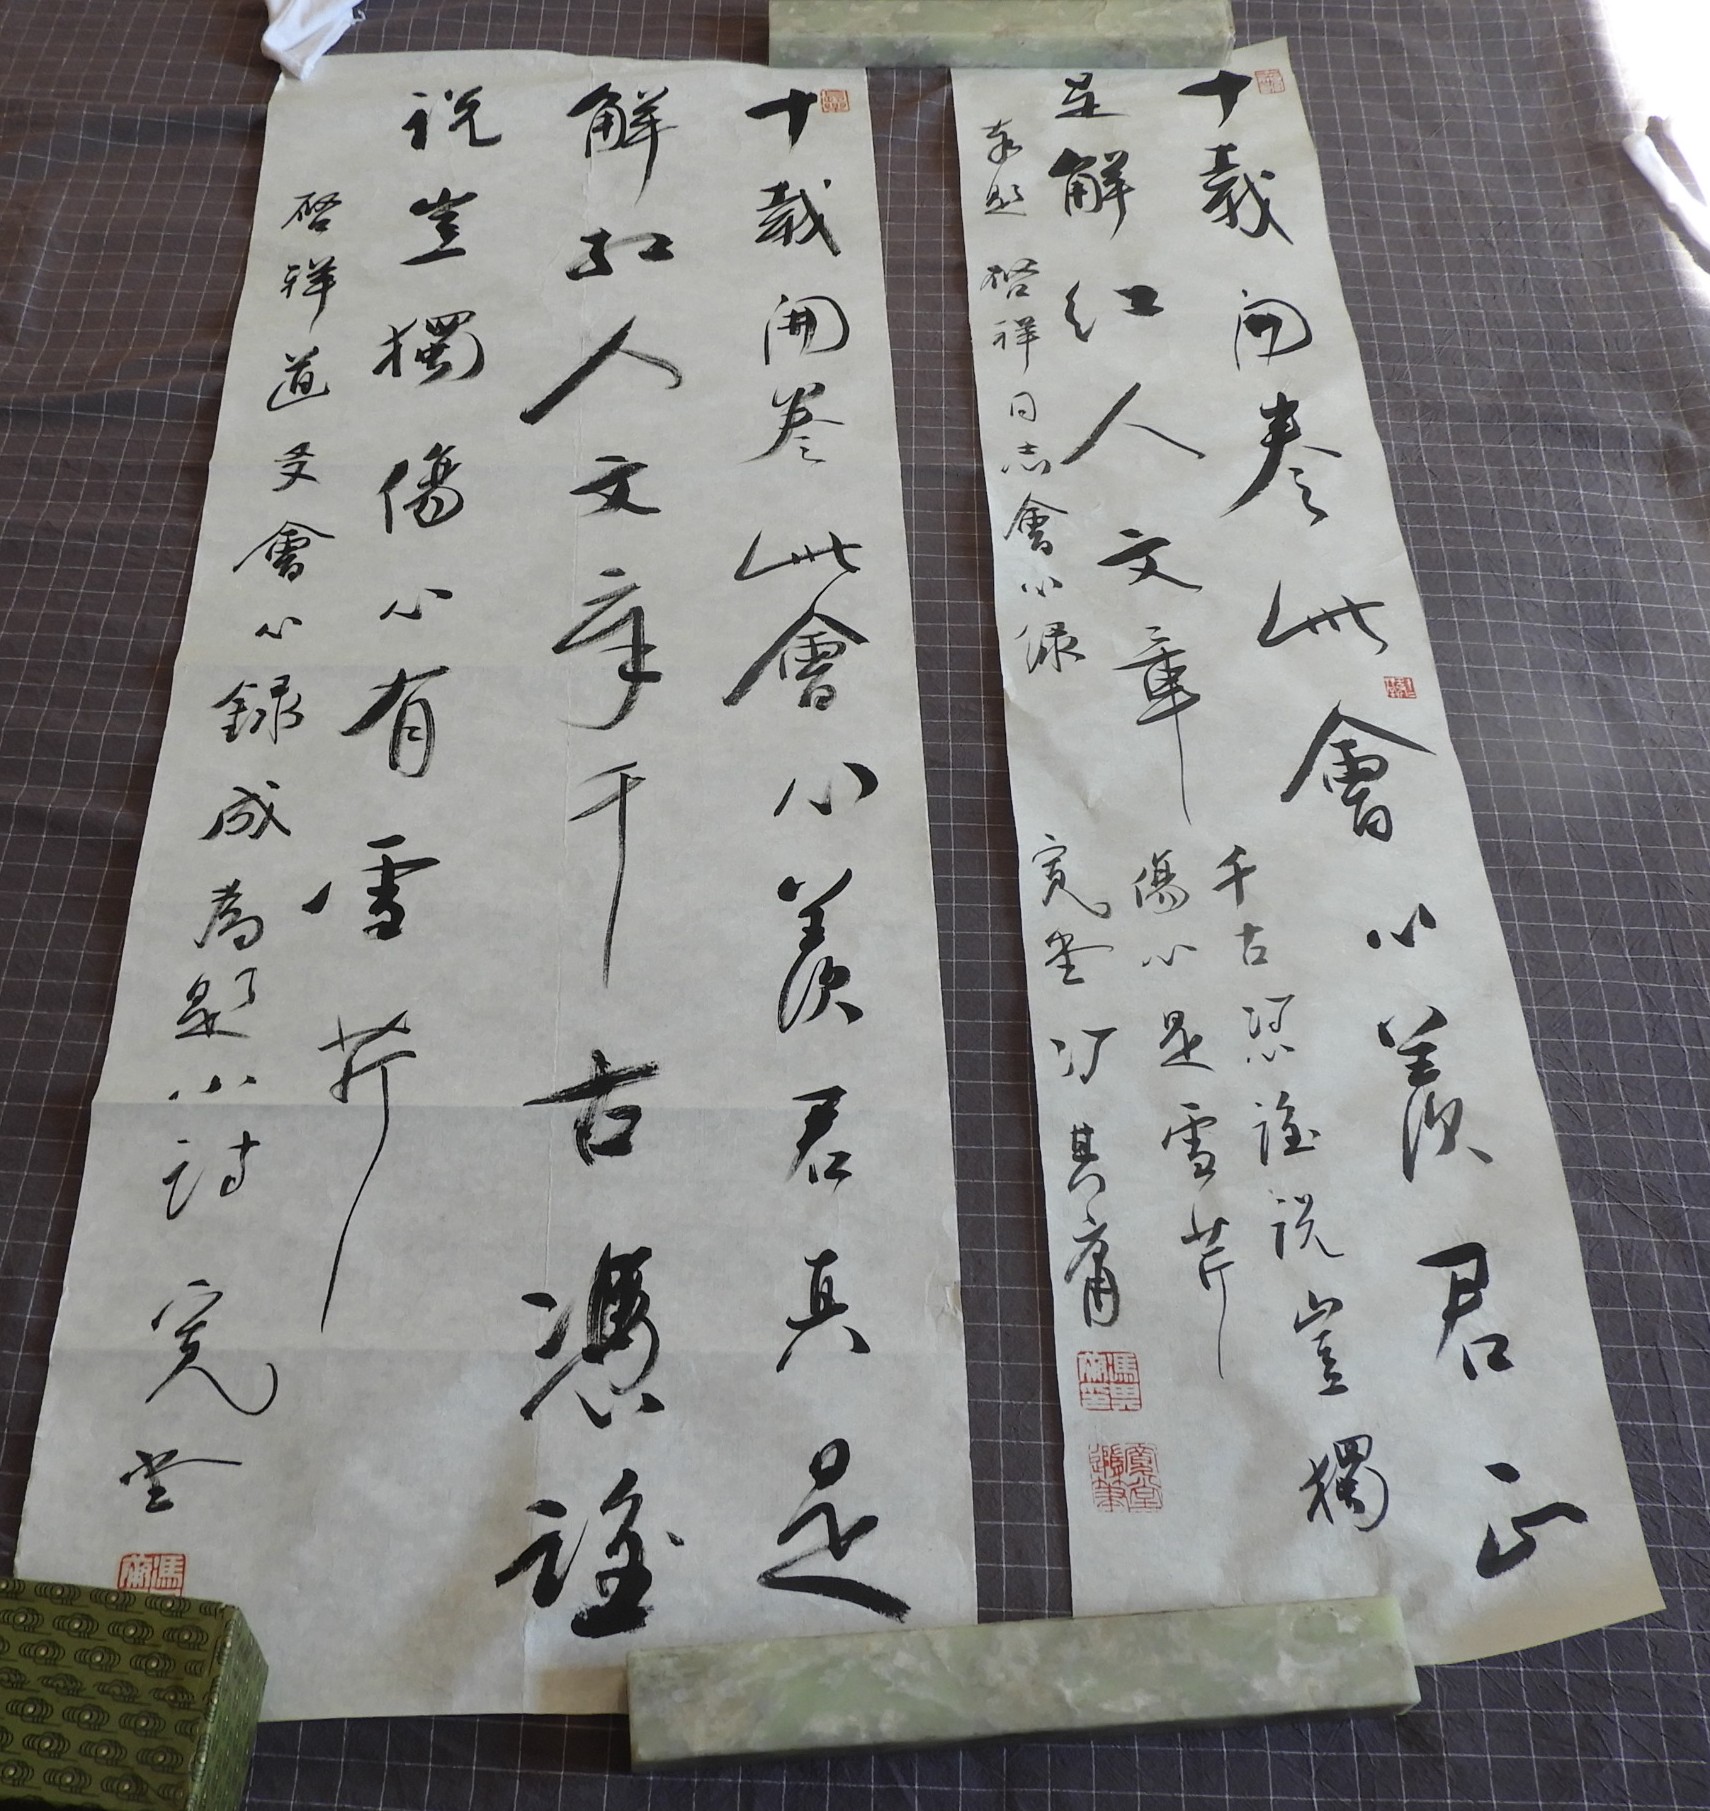 十載開卷此會心羨君正
是解紅人文章
千古憑誰說豈獨
傷心是雪芹
奉題 啓祥同志會心録
寬堂馮其庸
馮其庸印
十載開卷此會心羨君真是
解紅人文章千古憑誰
說豈獨傷心有雪芹
啓祥道友會心録成為題小詩 寬堂